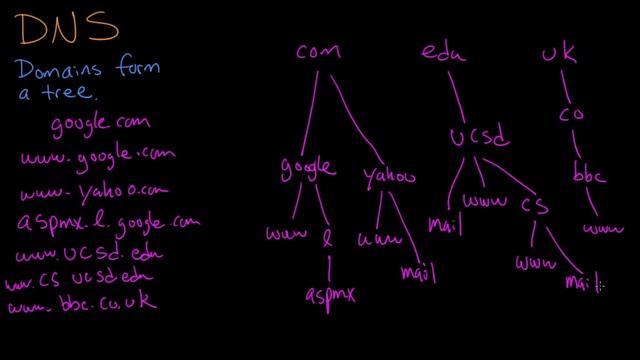 DNS
Domains form
a tree.
google.com
www.google.com
www.yahoo.com
aspmx.l.google.com
www.ucsd.edu
www.cs ucsd.edu
www.bbc.co.uk
com edu uk
co
ucsd
google yahoo bbc
mail www cs
www l www www
www mail
mail
aspmx